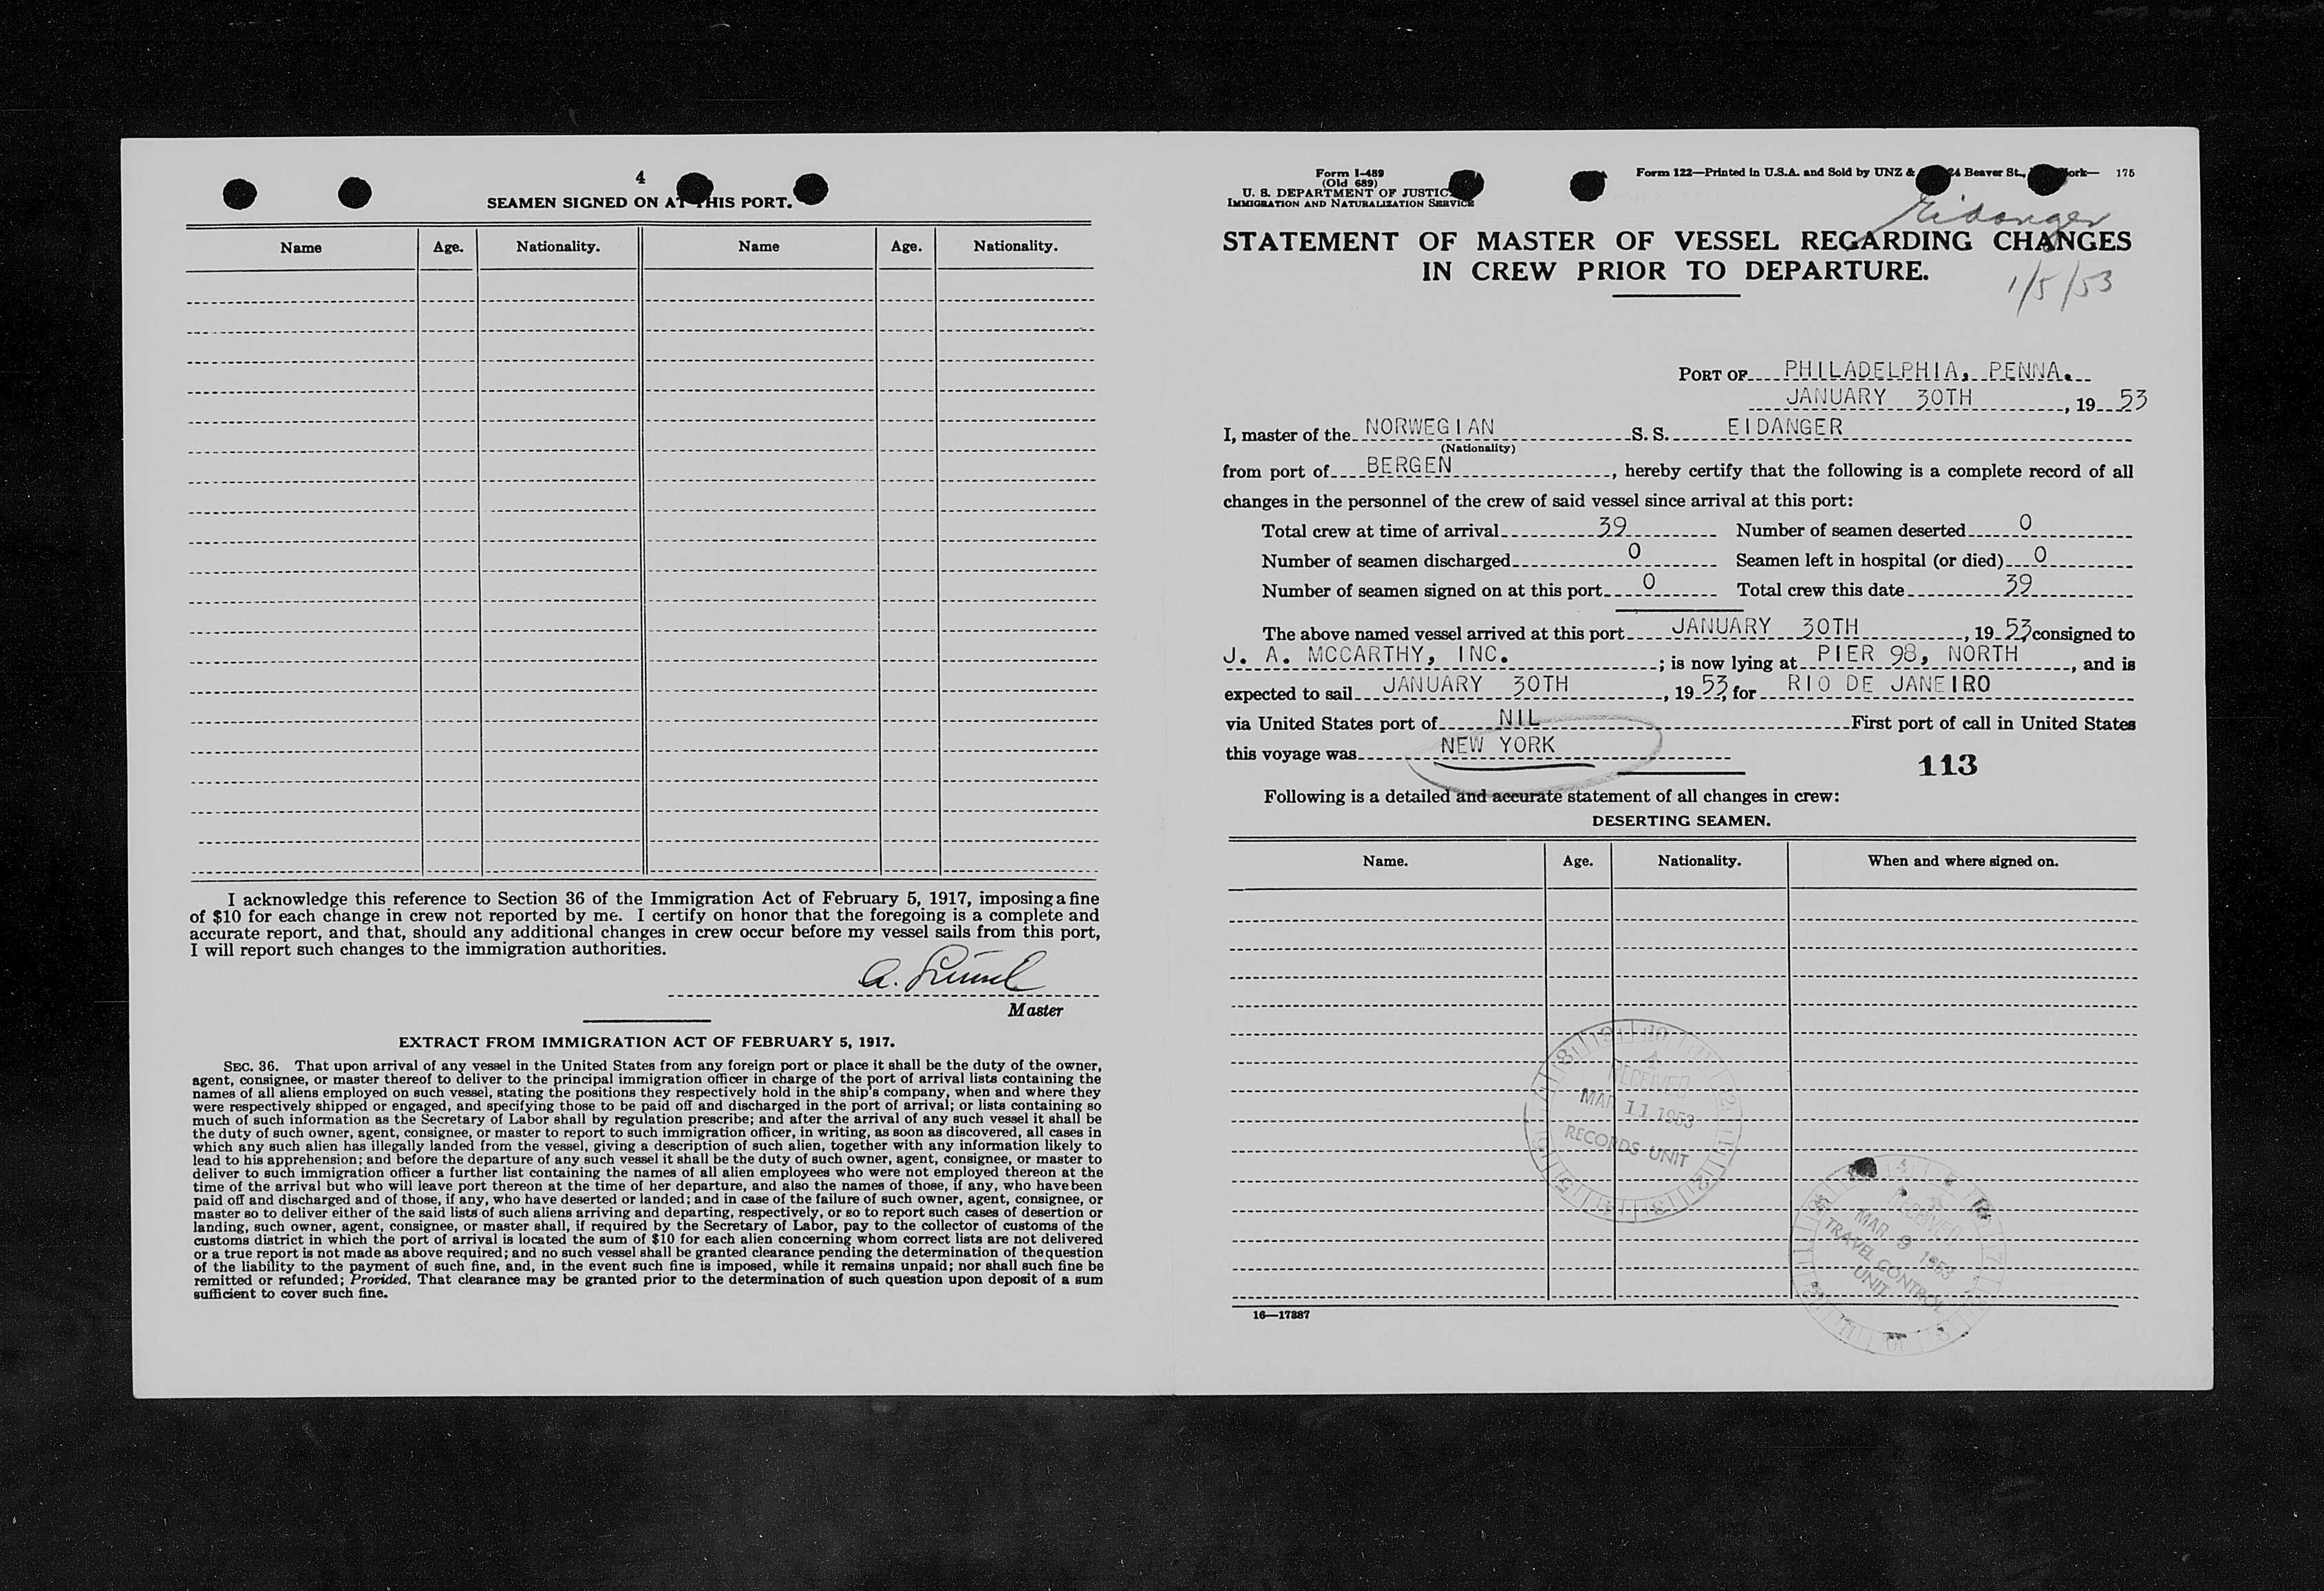 4
SEAMEN SIGNED ON AT THIS PORT.
Name Age. Nationality. Name Age. Nationality.
I acknowledge this reference to Section 36 of the Immigration Act of February 5, 1917, imposing a fine
of $10 for each change in crew not reported by me. I certify on honor that the foregoing is a complete and
accurate report, and that, should any additional changes in crew occur before my vessel sails from this port,
I will report such changes to the immigration authorities.
Master
EXTRACT FROM IMMIGRATION ACT OF FEBRUARY 5, 1917.
SEC. 36. That upon arrival of any vessel in the United States from any foreign port or place it shall be the duty of the owner,
agent, consignee, or master thereof to deliver to the principal immigration officer in charge of the port of arrival lists containing the
names of all aliens employed on such vessel, stating the positions they respectively hold in the ship's company, when and where they
were respectively shipped or engaged, and specifying those to be paid off and discharged in the port of arrival; or lists containing so
much of such information as the Secretary of Labor shall by regulation prescribe; and after the arrival of any such vessel it shall be
the duty of such owner, agent, consignee, or master to report to such immigration officer, in writing, as soon as discovered, all cases in
which any such alien has illegally landed from the vessel, giving a description of such alien, together with any information likely to
lead to his apprehension; and before the departure of any such vessel it shall be the duty of such owner, agent, consignee, or master to
deliver to such immigration officer a further list containing the names of all alien employees who were not employed thereon at the
time of the arrival but who will leave port thereon at the time of her departure, and also the names of those, if any, who have been
paid off and discharged and of those, if any, who have deserted or landed; and in case of the failure of such owner, agent, consignee, or
master so to deliver either of the said lists of such aliens arriving and departing, respectively, or so to report such cases of desertion or
landing, such owner, agent, consignee, or master shall, if required by the Secretary of Labor, pay to the collector of customs of the
customs district in which the port of arrival is located the sum of $10 for each alien concerning whom correct lists are not delivered
or a true report is not made as above required; and no such vessel shall be granted clearance pending the determination of the question
of the liability to the payment of such fine, and, in the event such fine is imposed, while it remains unpaid; nor shall such fine be
remitted or refunded; Provided, That clearance may be granted prior to the determination of such question upon deposit of a sum
sufficient to cover such fine.
Form I-489
(Old 689)
U. S. DEPARTMENT OF JUSTICE
IMMIGRATION AND NATURALIZATION SERVICE
Form 122—Printed in U.S.A. and Sold by UNZ & 24 Beaver St., York— 175
Eidanger
STATEMENT OF MASTER OF VESSEL REGARDING CHANGES
IN CREW PRIOR TO DEPARTURE.
1/5/53
PORT OF PHILADELPHIA, PENNA.
JANUARY 30TH, 19 53
I, master of the NORWEGIAN S. S. EIDANGER
(Nationality)
from port of BERGEN, hereby certify that the following is a complete record of all
changes in the personnel of the crew of said vessel since arrival at this port:
Total crew at time of arrival 39 Number of seamen deserted 0
Number of seamen discharged 0 Seamen left in hospital (or died) 0
Number of seamen signed on at this port 0 Total crew this date 39
The above named vessel arrived at this port JANUARY 30TH, 19 53 consigned to
J. A. MCCARTHY, INC.; is now lying at PIER 98, NORTH, and is
expected to sail JANUARY 30TH, 19 53, for RIO DE JANEIRO
via United States port of NIL First port of call in United States
this voyage was NEW YORK
113
Following is a detailed and accurate statement of all changes in crew:
DESERTING SEAMEN.
Name. Age. Nationality. When and where signed on.
RECEIVED
MAR 11 1953
RECORDS UNIT
RECEIVED
MAR 9 1953
TRAVEL CONTROL
UNIT
16—17887